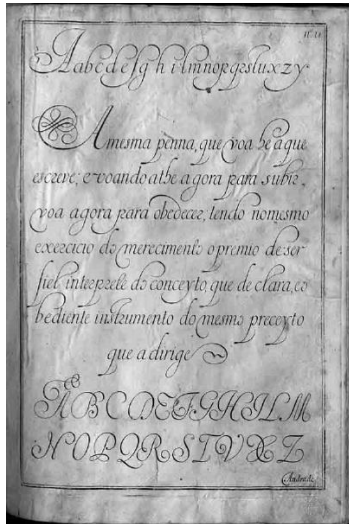 Aabcdefghilmnopqrstuxzy
A mesma penna, que voa he a que
escreve; e voando athe agora para subir,
voa agora para obedecer, tendo no mesmo
exercicio do merecimento o premio de ser
fiel interprete do conceyto, que de clara, eo
bediente instrumento do mesmo preceyto
que a dirige
ABCDEFGHILM
NOPQRSTVXZ
Andrade